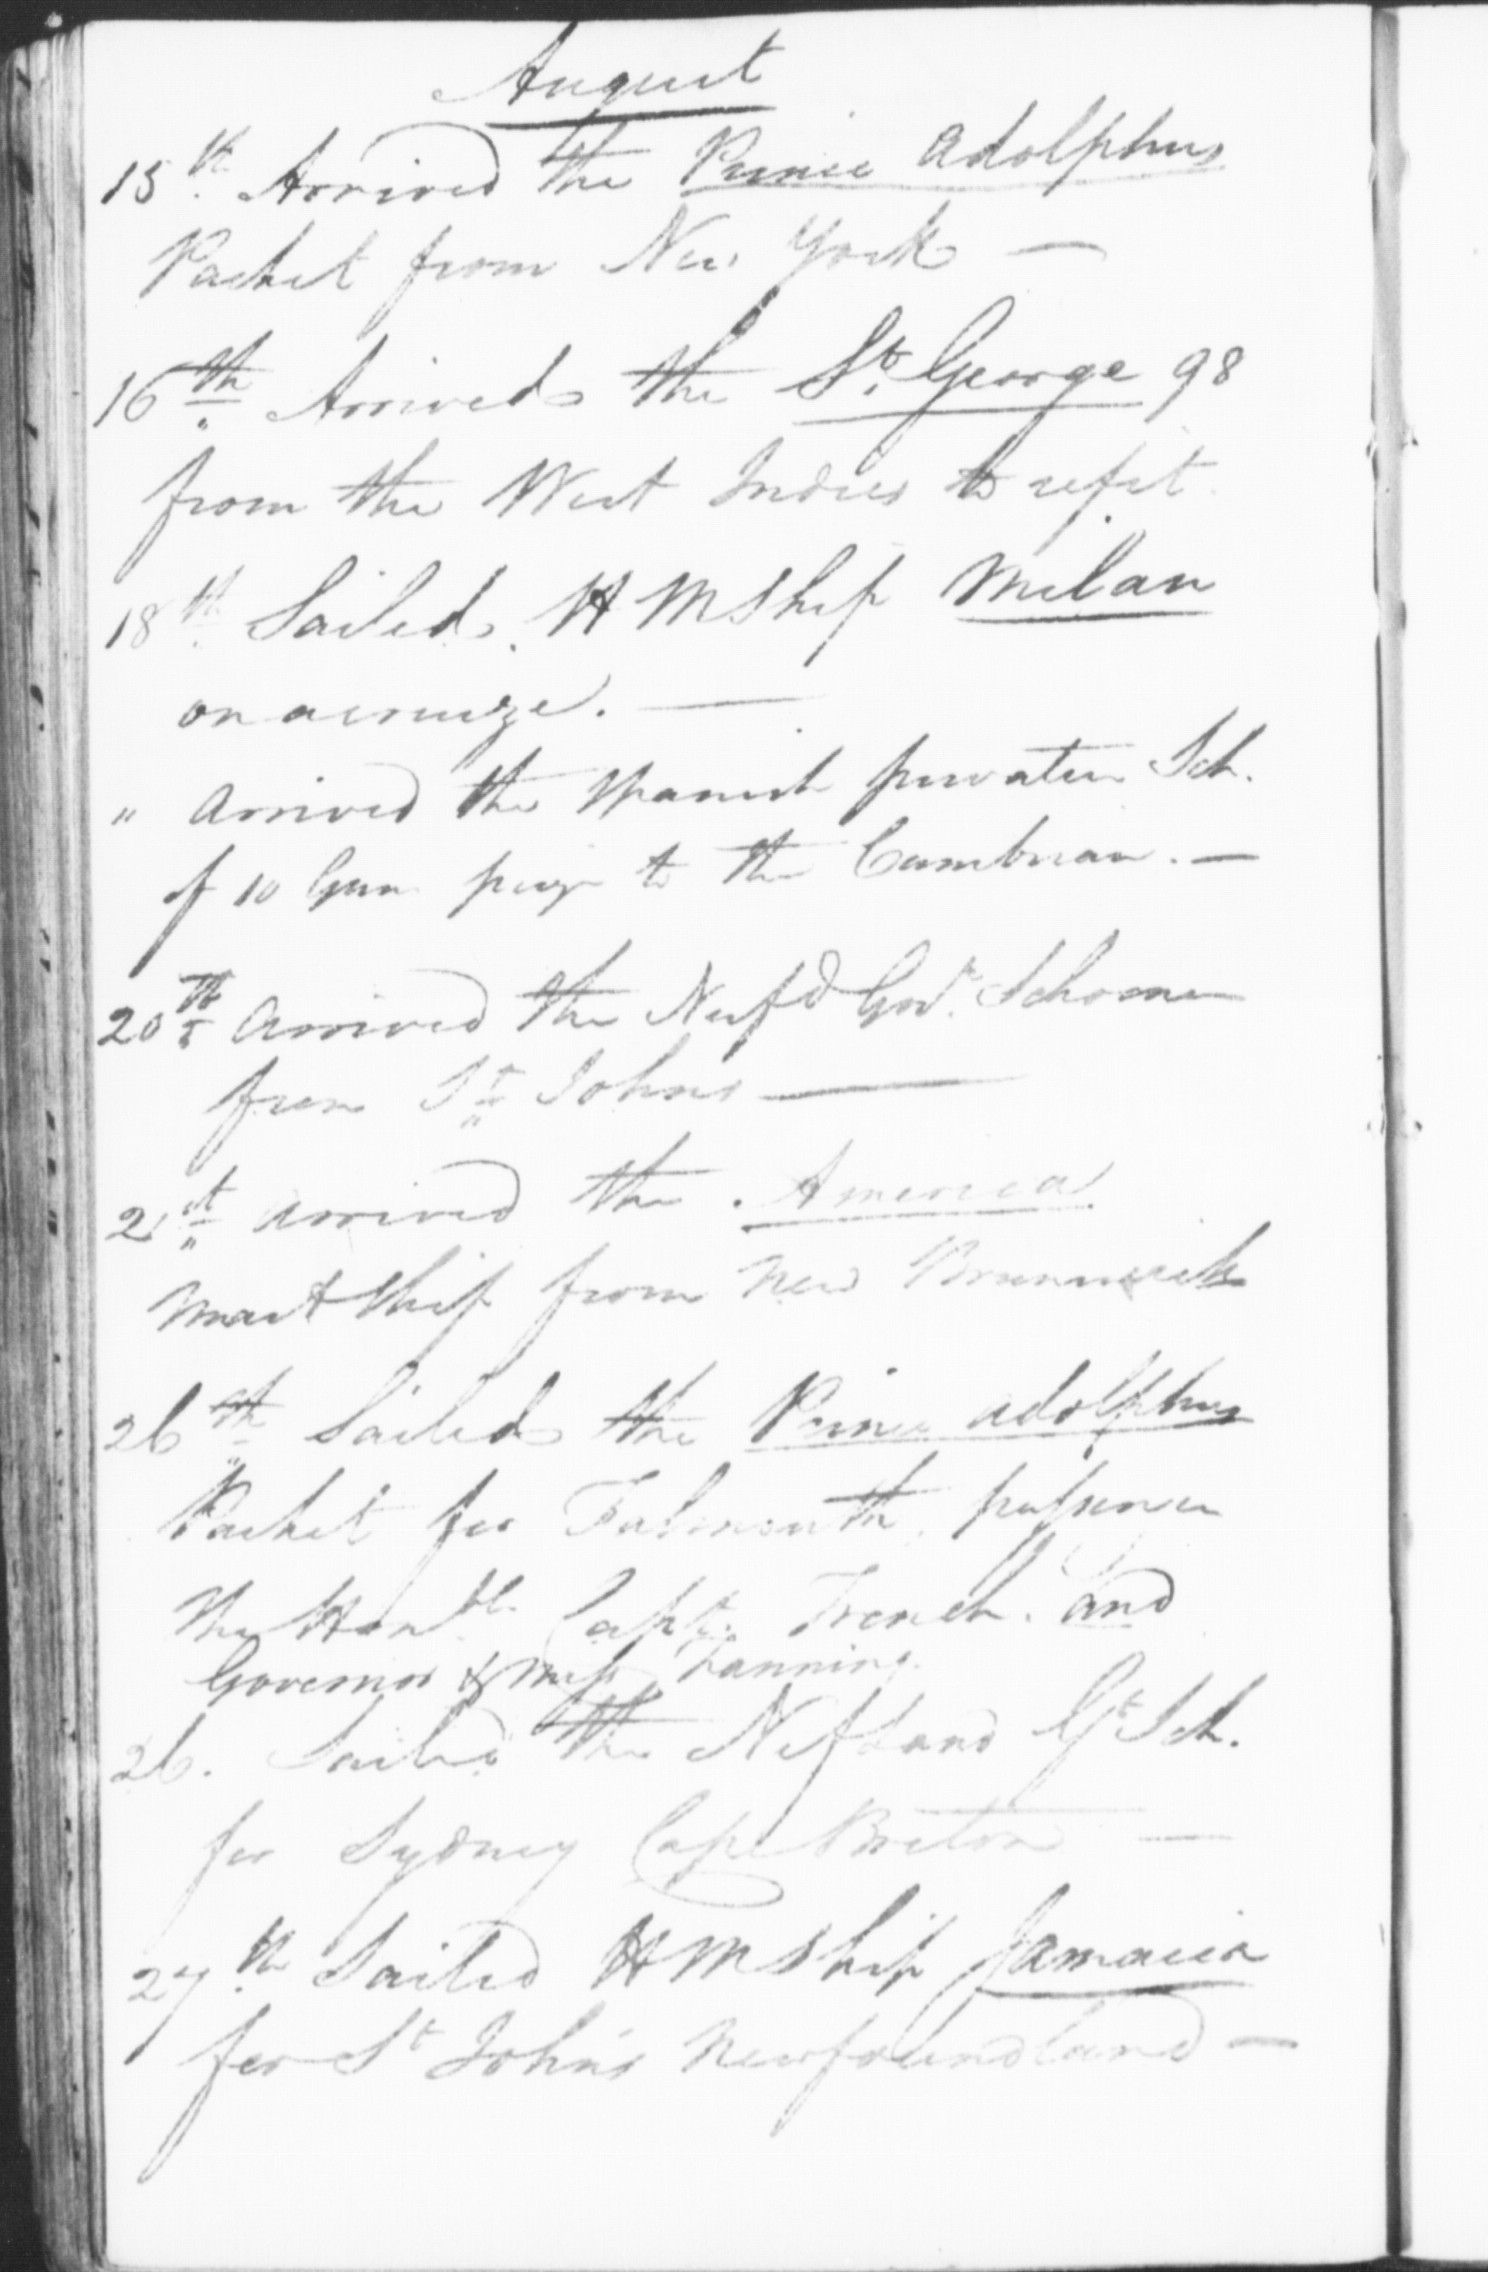 August
15th Arrived the Prince Adolphus
Packet from New York —
16th Arrived the St. George 98
from the West Indies to refit
18th Sailed H M Ship Milan
on a cruize. —
" Arrived the Spanish privateer Sch.
of 10 Guns prize to the Cambrian. —
20th Arrived the Newfd Govt. Schooner
from St Johns —
21st Arrived the America
Mast Ship from New Brunswick
26th Sailed the Prince Adolphus
Packet for Falmouth passengers
The Honble Capt. French and
Governor & Mrs Fanning.
26. Sailed the Nefland Gt Sch.
for Sydney Cape Breton —
27th Sailed H M Ship Jamaica
for St John's Newfoundland —